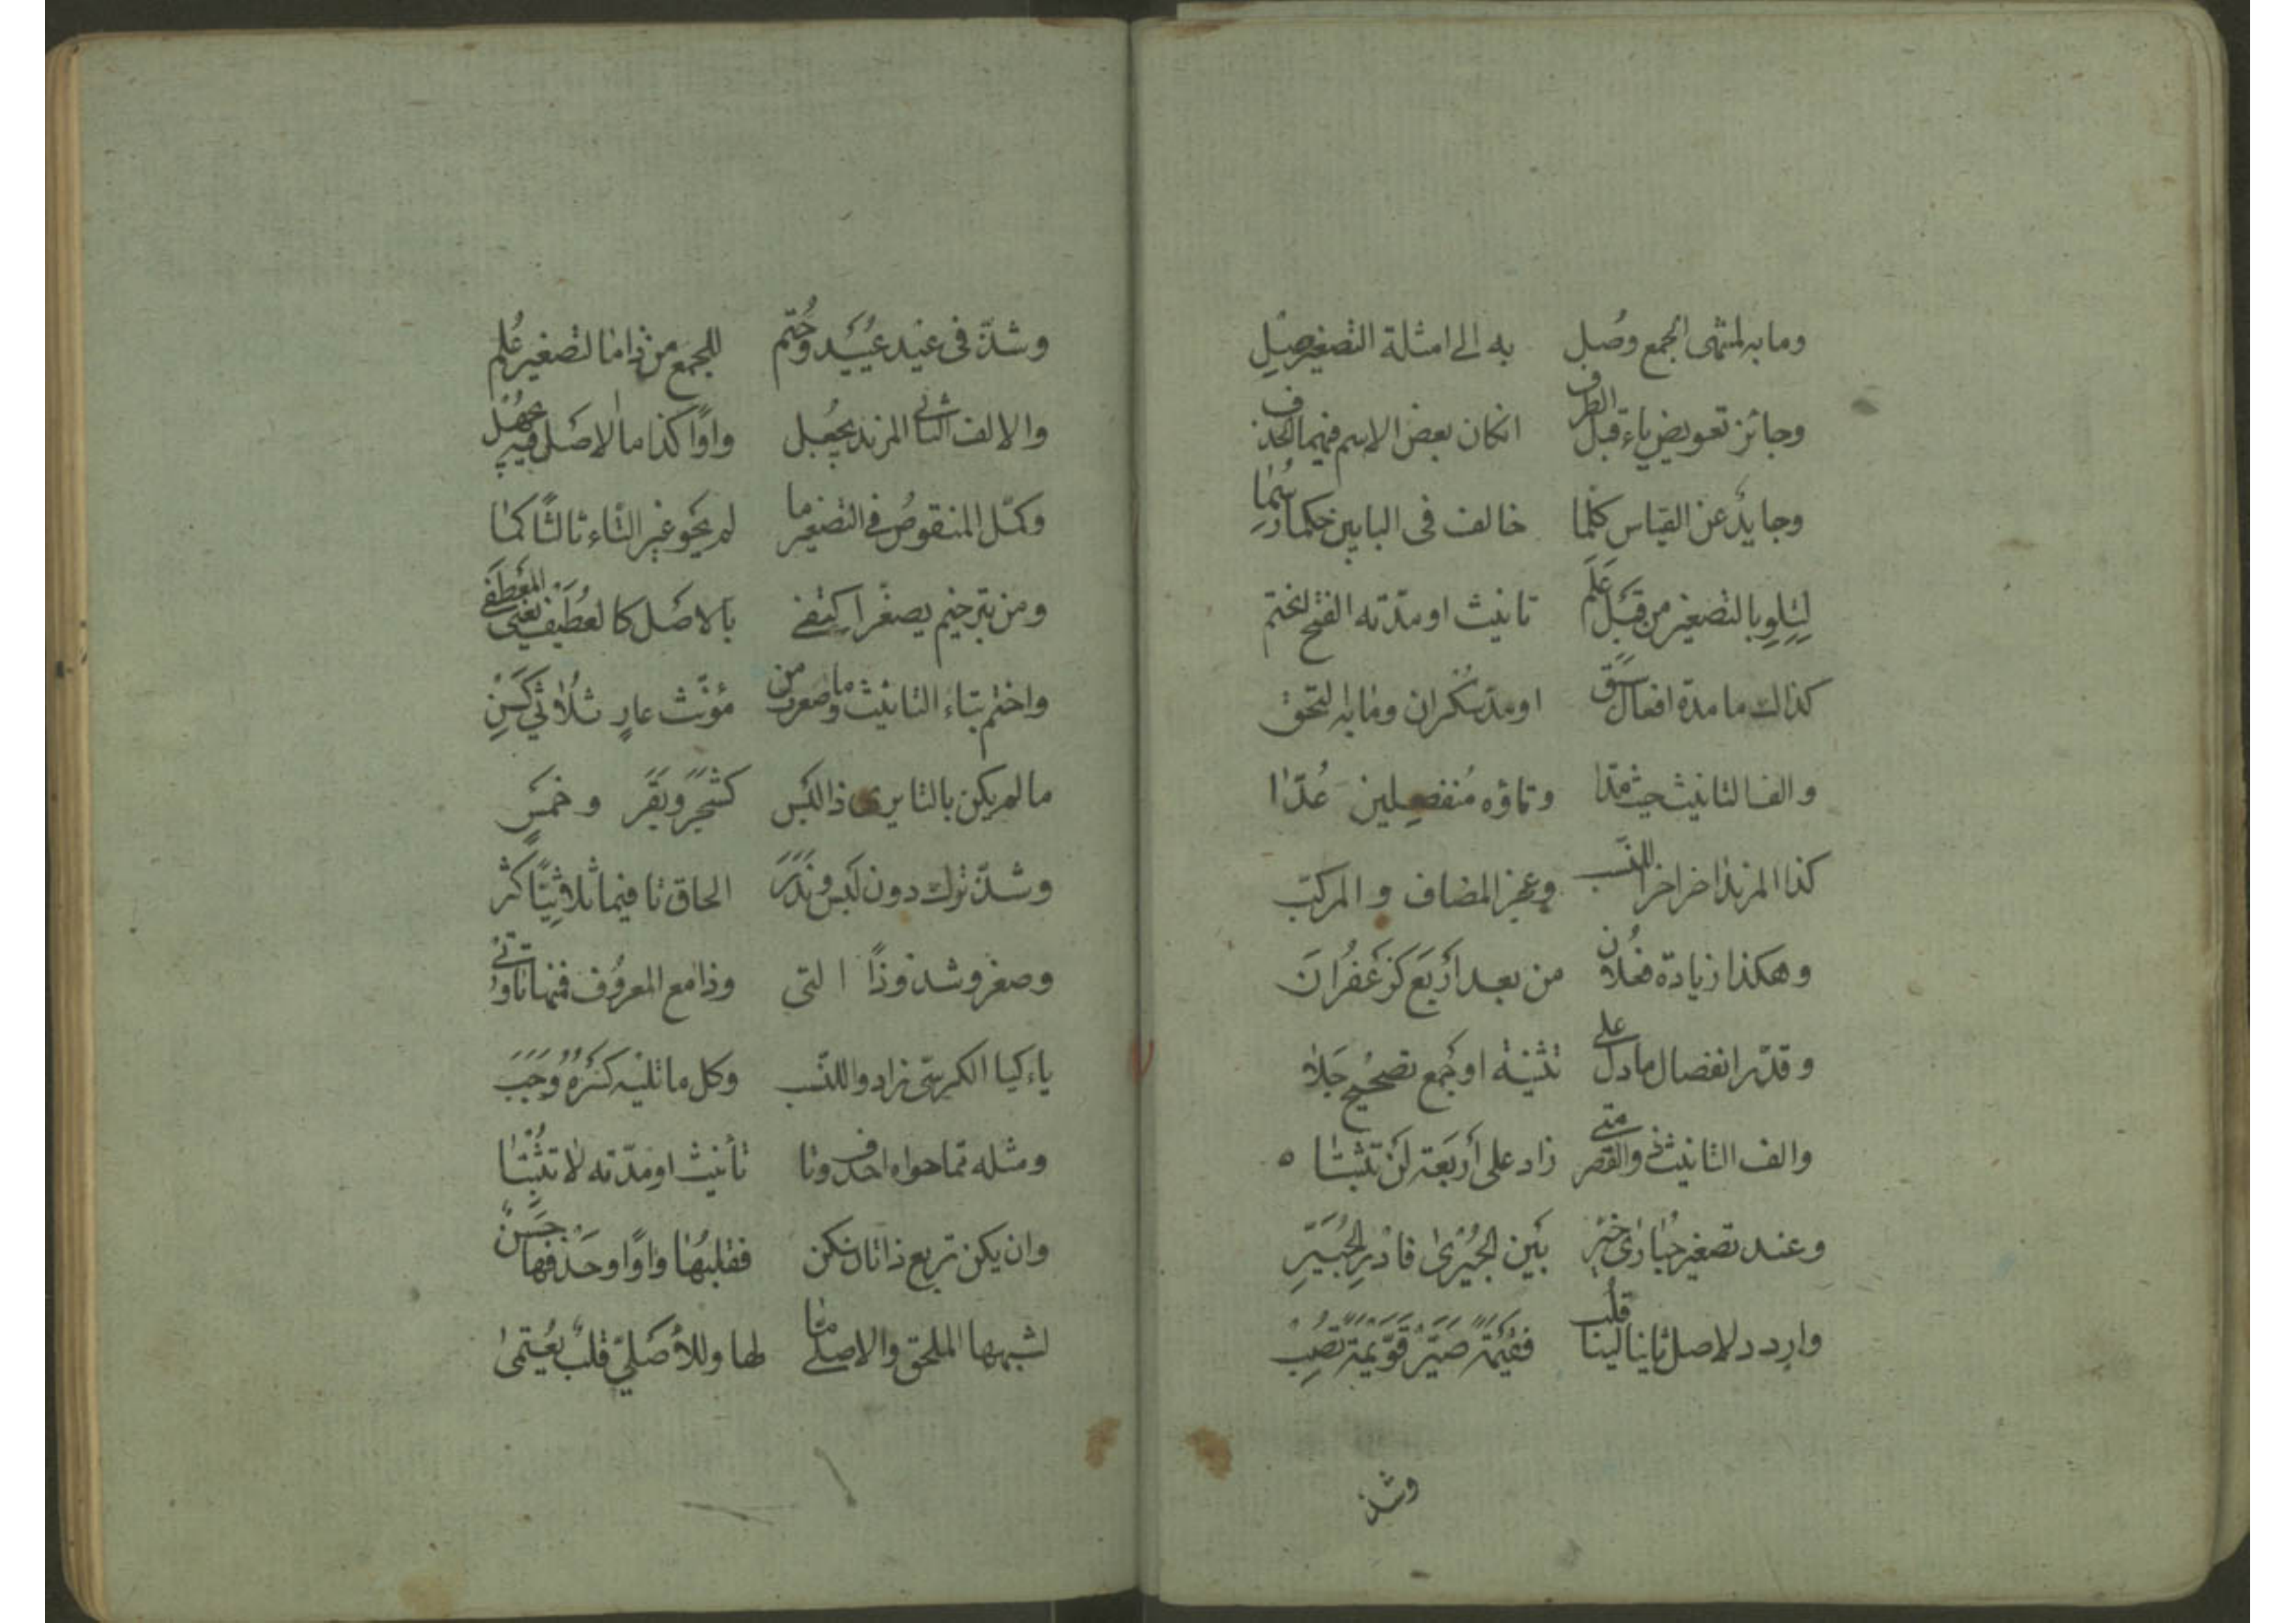 وما به لمنتهى الجمع وُصل به الى امثلة التصغير صِلِ
وجائز تعويض ياء قبل الطرف ان كان بعض الاسم فيهما انحذف
وحايدٌ عن القياس كلما خالف فى البابين حكما رُسِما
لِتِلوِ يا لتصغير من قَبْلِ عَلَم تانيث او مدّته الفتح انحتم
كذاك ما مدة افعال سَبَق او مدّ سَكران وما به التحق
والف التانيث حيث مُدّا وتاؤه مُنفصِلين عُدّا
كذا المزيد اخرا للنَّسَب وعجز المضاف والمركّب
وهكذا زيادة فعْلان من بعد أربَع كزَعْفُران
وقدّر انفصال ما دلّ على تثنية او جَمع تصحيْح جَلا
والف التانيث ذو القصر متى زاد على أربَعة لن تثبتا ٥
وعند تصغير حُبارى خيّر بَيْن الحُبيْرىٰ فادْرِ والحُبَيِّر
واردد لاصل ثانيا لينا قُلب فقيْمَة صَيّرْ قُوَيْمة تُصِبْ
وشذ
وشذّ فى عيْدٍ عُيَيْد وحُتم للجمع من ذا ما لتصغير عُلم
والالف الثانى المزيد يُجْعل واوًا كذا ما الاصْل فيه يُجهَل
وكمّل المنقوصَ فى التصغير ما لم يَحْوِ غير التّاء ثالثًا كما
ومن بترخيم يصغّر اكتفى بالاصْل كالعُطَيْف يَعْنى المعْطَفى
واختم بتاء التانيث ما صغرت من مؤنّث عارٍ ثُلاثيّ كَسِنّ
ما لم يكن بالتا يرى ذا لَبْس كشجَرٍ وبَقَر وخمسٍ
وشذّ ترك دون لَبْس ونَدَر الحاق تا فيما ثلاثيًّا كثَر
وصغروا شذوذًا التى وذا مع المعرُوف فيها تا وتى
ياء كيا الكرسىّ زادوا للنّسب وكل ما تليْه كَسْرُهُ وَجَبَ
ومثله ممّا حواه احذف وتا تأنيْث او مدّته لا تُثْبِتا
وان يكن تربع ذا ثان سكن فقلبُهَا واوًا وحَذفها حَسَنٌ
لشبهها الملحق والاصلى ما لها وللأصْليّ قلبٌ يُعْتمىٰ